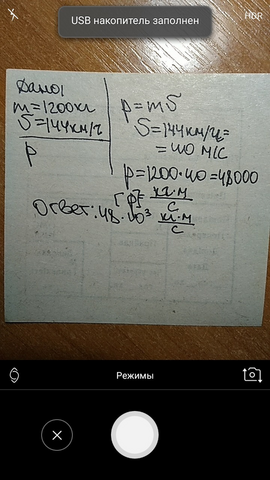 USB накопитель заполнен
HDR
Дано:
m=1200кг
υ=144км/ч
p
p=mυ
υ=144км/ч=
=40 м/с
p=1200·40=48000
[p]= кг·м
с
Ответ: 48·10³ кг·м
с
Режимы